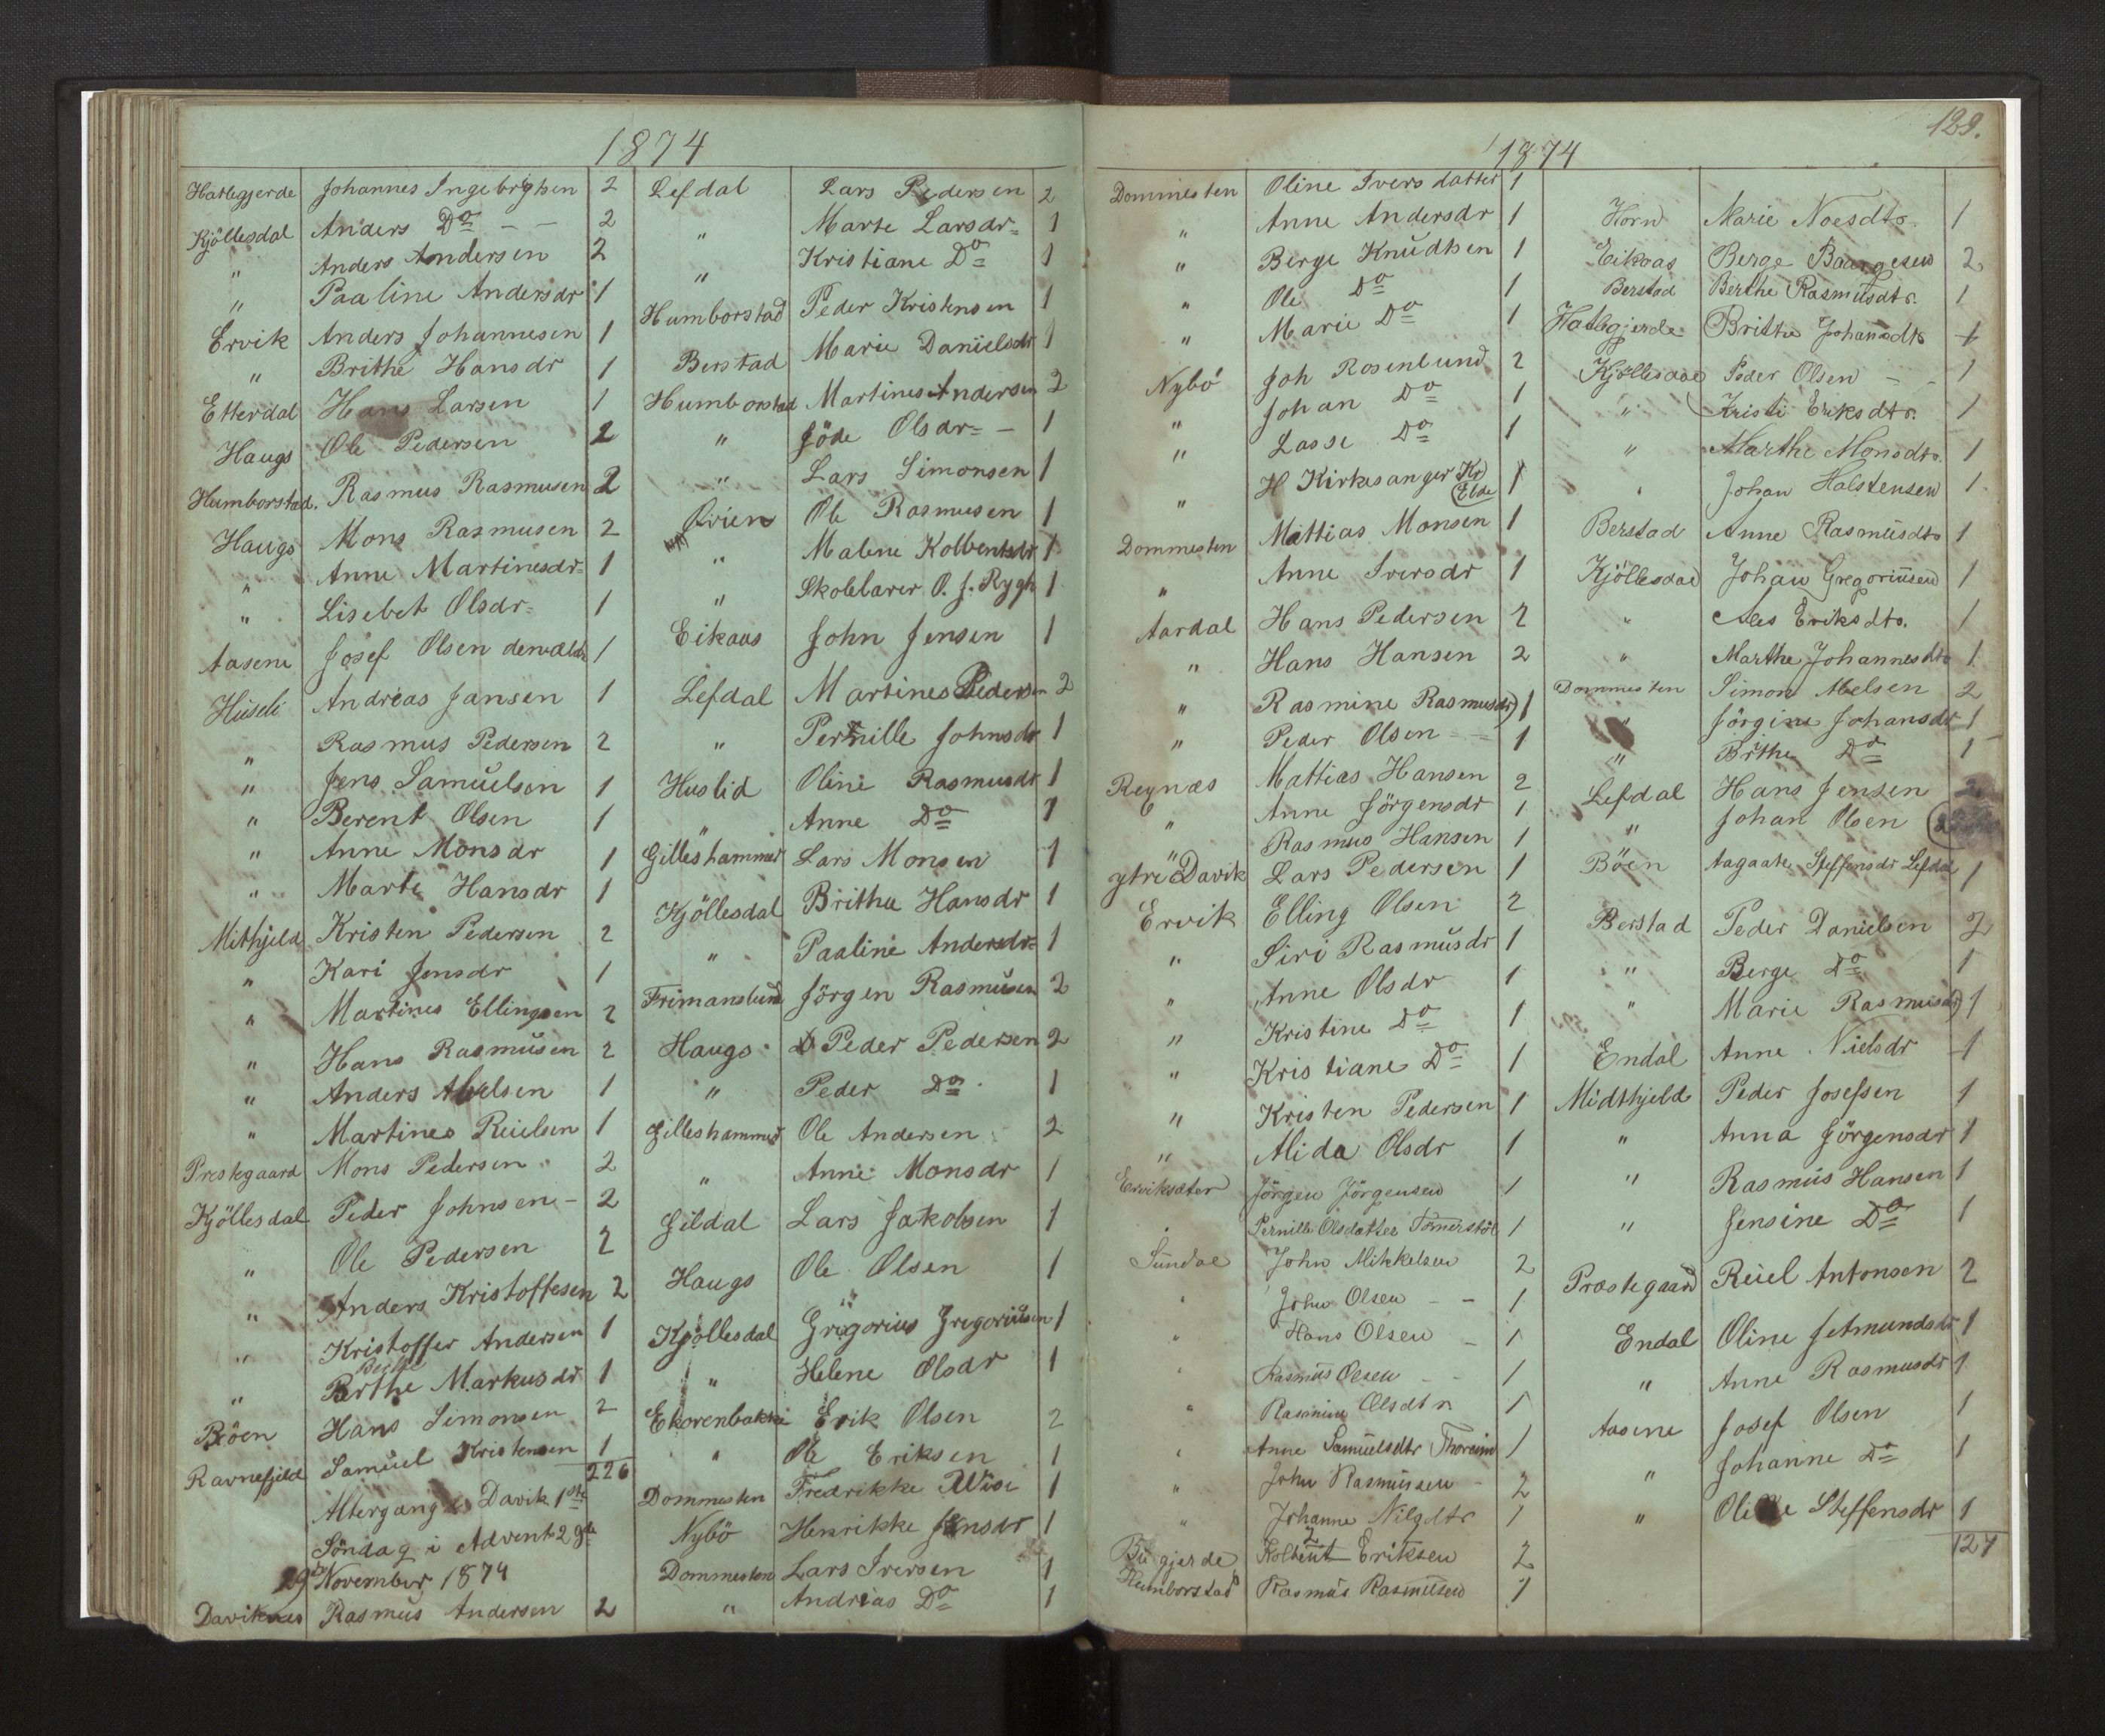 1874
Hatlegjerde Johannes Ingebrigtsen 2
Kjöllesdal Anders Do - - 2
" Anders Andersen 2
" Paaline Andersdr 1
Ervik Anders Johannesen 1
" Brithe Hansdr 1
Etterdal Hans Larsen 1
Haugs Ole Pedersen 2
Humborstad. Rasmus Rasmusen 2
Haugs Mons Rasmusen 2
" Anne Martinesdr 1
" Lisebet Olsdr 1
Aasene Josef Olsen 1
Huseli Andreas Jansen 1
" Rasmus Pedersen 2
" Jens Samuelsen 1
" Berent Olsen 1
" Anne Monsdr 1
" Marte Hansdr 1
Mithjeld Kristen Pedersen 2
" Kari Jensdr 1
" Martines Ellingsen 2
" Hans Rasmusen 2
" Anders Abelsen 1
" Martines Reielsen 1
Prestegaard Mons Pedersen 2
Kjöllesdal Peder Johnsen - 2
" Ole Pedersen 2
" Anders Kristoffesen 2
" Kristoffer Andersen 1
" Berthe Markusdr 1
Böen Hans Simonsen 2
Ravnefjeld Samuel Kristensen 1
226
Altergang i Davik 1ste
Söndag i Advent 29de
29 November 1874
Daviknes Rasmus Andersen 2
Lefdal Lars Pedersen 2
" Marte Larsdr 1
" Kristiane Do 1
Humborstad Peder Kristensen 1
Berstad Marie Danielsdr 1
Humborstad Martines Andersen 2
" Jöde Olsdr - 1
" Lars Simonsen 1
Ørien Ole Rasmusen 1
" Malene Kolbentsdr 1
" Skolelærer O. J. Rygh 1
Eikaas John Jensen 1
Lefdal Martines Pedersen 2
" Pernille Johnsdr 1
Huslid Oline Rasmusdr 1
" Anne Do 1
Gilleshammer Lars Monsen 1
Kjöllesdal Brithe Hansdr 1
" Paaline Andersdr 1
Frimanslund Jörgen Rasmusen 2
Haugs Peder Pedersen 2
" Peder Do 1
Gilleshammer Ole Andersen 2
" Anne Monsdr 1
Gildal Lars Jakobsen 1
Haugs Ole Olsen 1
Kjöllesdal Gregorius Gregoriusen 1
" Helene Olsdr 1
Ekorenbakke Erik Olsen 2
" Ole Eriksen 1
Dommesten Fredrikke Wise 1
Nybö Henrikke Jensdr 1
Dommesten Lars Iversen 1
" Andreas Do 1
129.
1874
Dommesten Oline Iversdatter 1
" Anne Andersdr 1
" Berge Knudtsen 1
" Ole Do 1
" Marie Do 1
Nybö Joh Rosenlund 2
" Johan Do 1
" Lasse Do 1
" H Kirkesanger Kr Elde 1
Dommesten Mattias Monsen 1
" Anne Iversdr 1
Aardal Hans Pedersen 2
" Hans Hansen 2
" Rasmine Rasmusdr 1
" Peder Olsen - 1
Reynæs Mattias Hansen 2
" Anne Jörgensdr 1
" Rasmus Hansen 1
ytre Davik Lars Pedersen 1
Ervik Elling Olsen 2
" Siri Rasmusdr 1
" Anne Olsdr 1
" Kristine Do 1
" Kristiane Do 1
" Kristen Pedersen 1
" Alida Olsdr 1
Erviksæter Jörgen Jörgensen 1
" Pernille Olsdatter 1
Sundal John Mikkelsen 2
" John Olsen - - 1
" Hans Olsen - 1
" Rasmus Olsen - - 1
" Rasmine Olsdtr 1
" Anne Samuelsdtr Thoreim 1
" John Rasmussen - 2
" Johanne Nilsdtr 1
Buegjerde Kolbent Eriksen 2
Humborstad Rasmus Rasmussen 1
Horn Marie Noesdtr 1
Eikaas Berge Baargesen 2
Berstad Berthe Rasmusdtr. 1
Hatlegjerde Brithe Johansdtr 1
Kjöllesdal Peder Olsen - - 1
" Kristi Eriksdtr. 1
" Marthe Monsdtr. 1
" Johan Halstensen 1
Berstad Anne Rasmusdtr 1
Kjöllesdal Johan Gregoriusen 1
" Ales Eriksdtr. 1
" Marthe Johannesdtr 1
Dommesten Simon Abelsen 2
" Jörgine Johansdr 1
" Brithe Do 1
Lefdal Hans Jensen 2
" Johan Olsen 2
Böen Aagaate Steffensdr Lefdal 1
Berstad Peder Danielsen 2
" Berge Do 1
" Marie Rasmusdr 1
Endal Anne Nielsdr 1
Midthjeld Peder Josefsen 1
" Anna Jörgensdr 1
" Rasmus Hansen 1
" Jensine Do 1
Præstegaard Reiel Antonsen 2
Endal Oline Jetmundsdr 1
" Anne Rasmusdr 1
Aasene Josef Olsen 1
" Johanne Do 1
" Oline Steffensdr 1
127